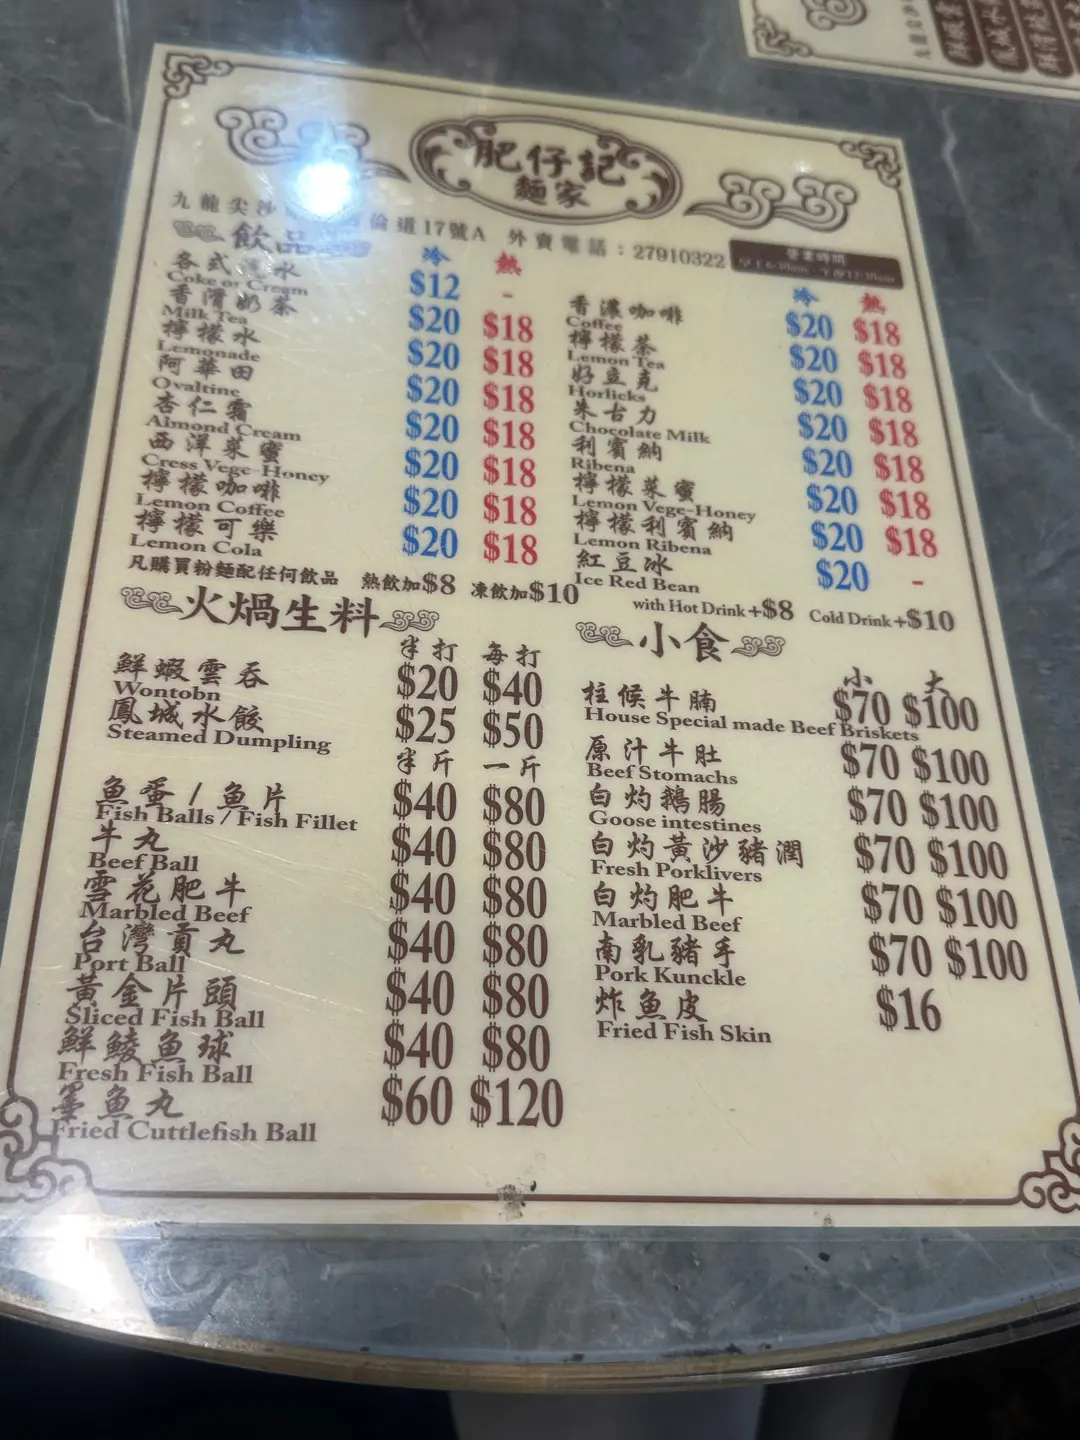 肥仔記
麵家
九龍尖沙 倫道17號A 外賣電話：27910322
營業時間
飲品
冷 熱
各式汽水 $12 -
Coke or Cream
香滑奶茶 $20 $18
Milk Tea
檸檬水 $20 $18
Lemonade
阿華田 $20 $18
Ovaltine
杏仁霜 $20 $18
Almond Cream
西洋菜蜜 $20 $18
Cress Vege-Honey
檸檬咖啡 $20 $18
Lemon Coffee
檸檬可樂 $20 $18
Lemon Cola
冷 熱
香濃咖啡 $20 $18
Coffee
檸檬茶 $20 $18
Lemon Tea
好立克 $20 $18
Horlicks
朱古力 $20 $18
Chocolate Milk
利賓納 $20 $18
Ribena
檸檬菜蜜 $20 $18
Lemon Vege-Honey
檸檬利賓納 $20 $18
Lemon Ribena
紅豆冰 $20 -
Ice Red Bean
凡購買粉麵配任何飲品 熱飲加$8 凍飲加$10
with Hot Drink+$8 Cold Drink+$10
火煱生料
半打 每打
鮮蝦雲吞 $20 $40
Wontobn
鳳城水餃 $25 $50
Steamed Dumpling
半斤 一斤
魚蛋/魚片 $40 $80
Fish Balls / Fish Fillet
牛丸 $40 $80
Beef Ball
雪花肥牛 $40 $80
Marbled Beef
台灣貢丸 $40 $80
Port Ball
黃金片頭 $40 $80
Sliced Fish Ball
鮮鯪魚球 $40 $80
Fresh Fish Ball
墨魚丸 $60 $120
Fried Cuttlefish Ball
小食
小 大
柱候牛腩 $70 $100
House Special made Beef Briskets
原汁牛肚 $70 $100
Beef Stomachs
白灼鵝腸 $70 $100
Goose intestines
白灼黃沙豬潤 $70 $100
Fresh Porklivers
白灼肥牛 $70 $100
Marbled Beef
南乳豬手 $70 $100
Pork Kunckle
炸魚皮 $16
Fried Fish Skin